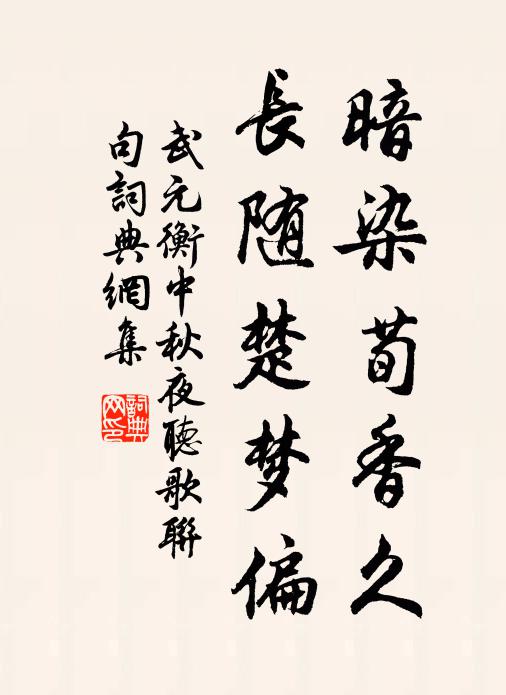 暗染荀香久
長随楚梦偏
武元衡中秋夜聽歌聯
句詞典網集
詞典
网印